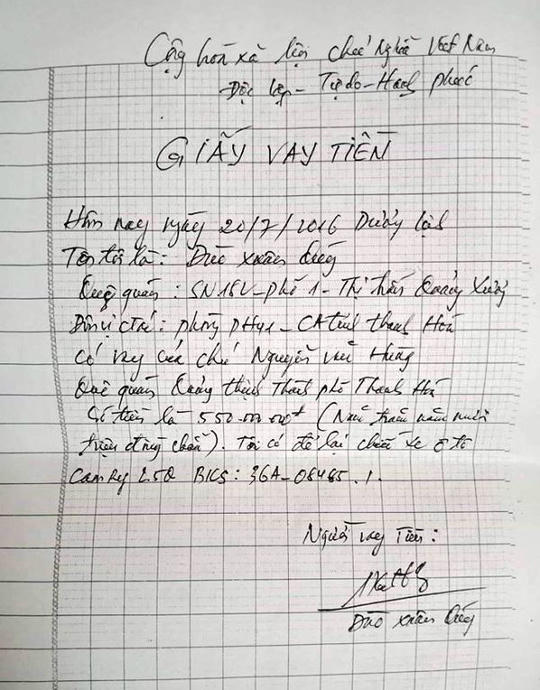 Cộng hòa xã hội chủ Nghĩa Việt Nam
Độc lập - Tự do - Hạnh phúc
GIẤY VAY TIỀN
Hôm nay ngày 20/7/2016 Dương lịch
Tên tôi là: Đào Xuân
Quê quán: SN 16V - phố 1 - Thị trấn Quảng Xương
Đơn vị c.tác: phòng PH41 - CA tỉnh Thanh Hóa
Có vay của chú Nguyễn Hưng
Quê quán Quảng Thịnh Thành phố Thanh Hóa
Số tiền là 550.000.000đ (Năm trăm năm mươi
triệu đồng chẵn). Tôi có để lại chiếc xe ô tô
Camry 2.5Q BKS: 36A-08485.1.
Người vay Tiền:
Đào Xuân